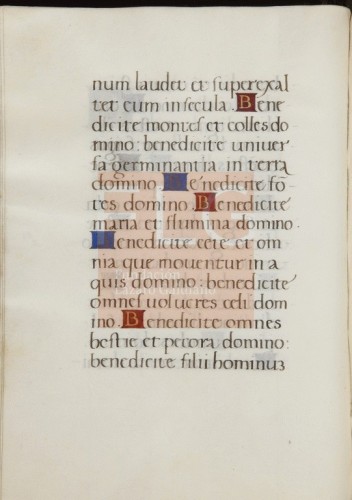 num laudet et superexal
tet eum in secula. Bene
dicite montes et colles do
mino: benedicite univer
sa germinantia in terra
domino. Benedicite fo
tes domino. Benedicite
maria et flumina domino
Benedicite cete et om
nia que moventur in a
quis domino: benedicite
omnes uolucres celi dom
ino. Benedicite omnes
bestie et pecora domino:
benedicite filii hominuʒ